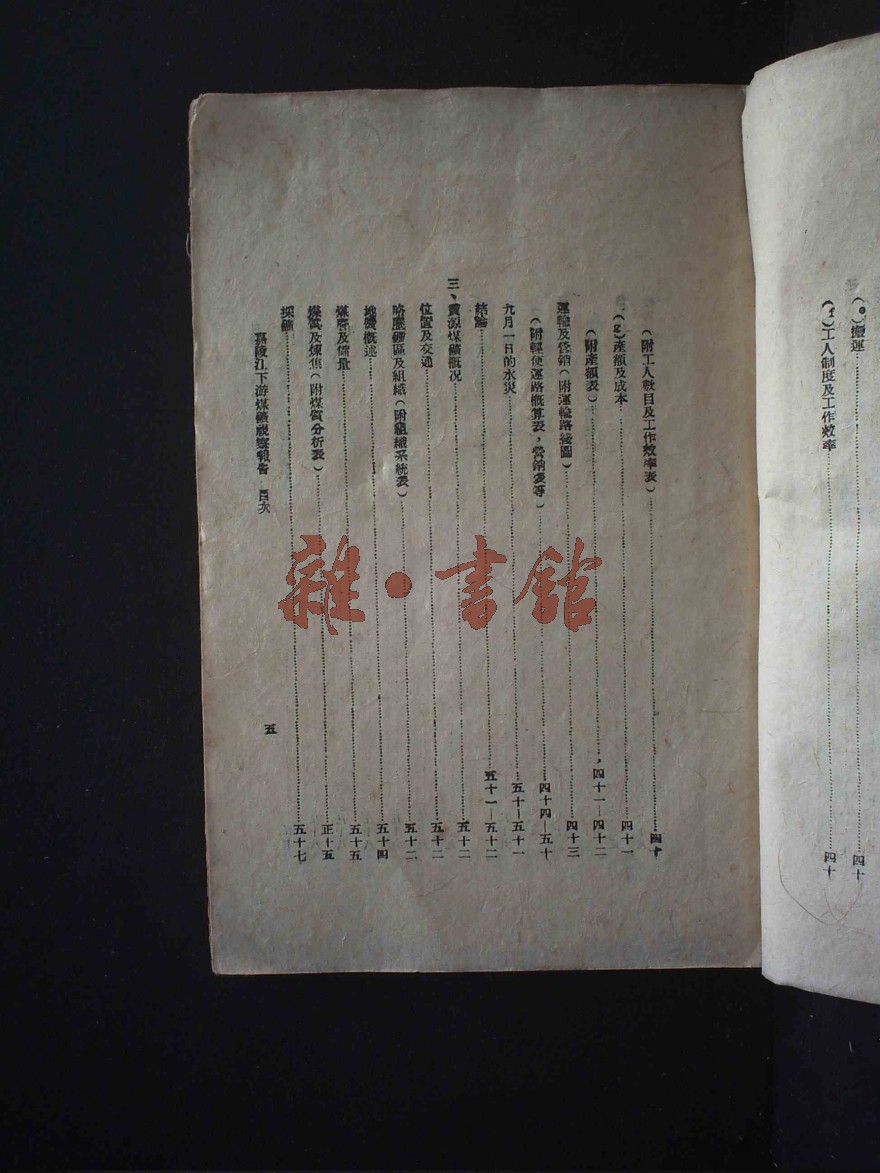 (e)搬運……四十
(f)工人制度及工作效率……四十
(附工人數目及工作效率表)……四十
(g)產額及成本……四十一
(附產額表)……四十一—四十二
運輸及營銷(附運輸路綫圖)……四十三
(附輕便運路概算表，營銷表等)……四十四—五十
九月一日的水災……五十—五十一
結論……五十一—五十二
三、寶源煤礦概况……五十二
位置及交通……五十二
略歷礦區及組織(附組織系統表)……五十二
地質概述……五十四
煤層及儲量……五十五
煤質及煉焦(附煤質分析表)……正十五
採礦……五十七
嘉陵江下游煤礦視察報告 目次
五
雜·書館